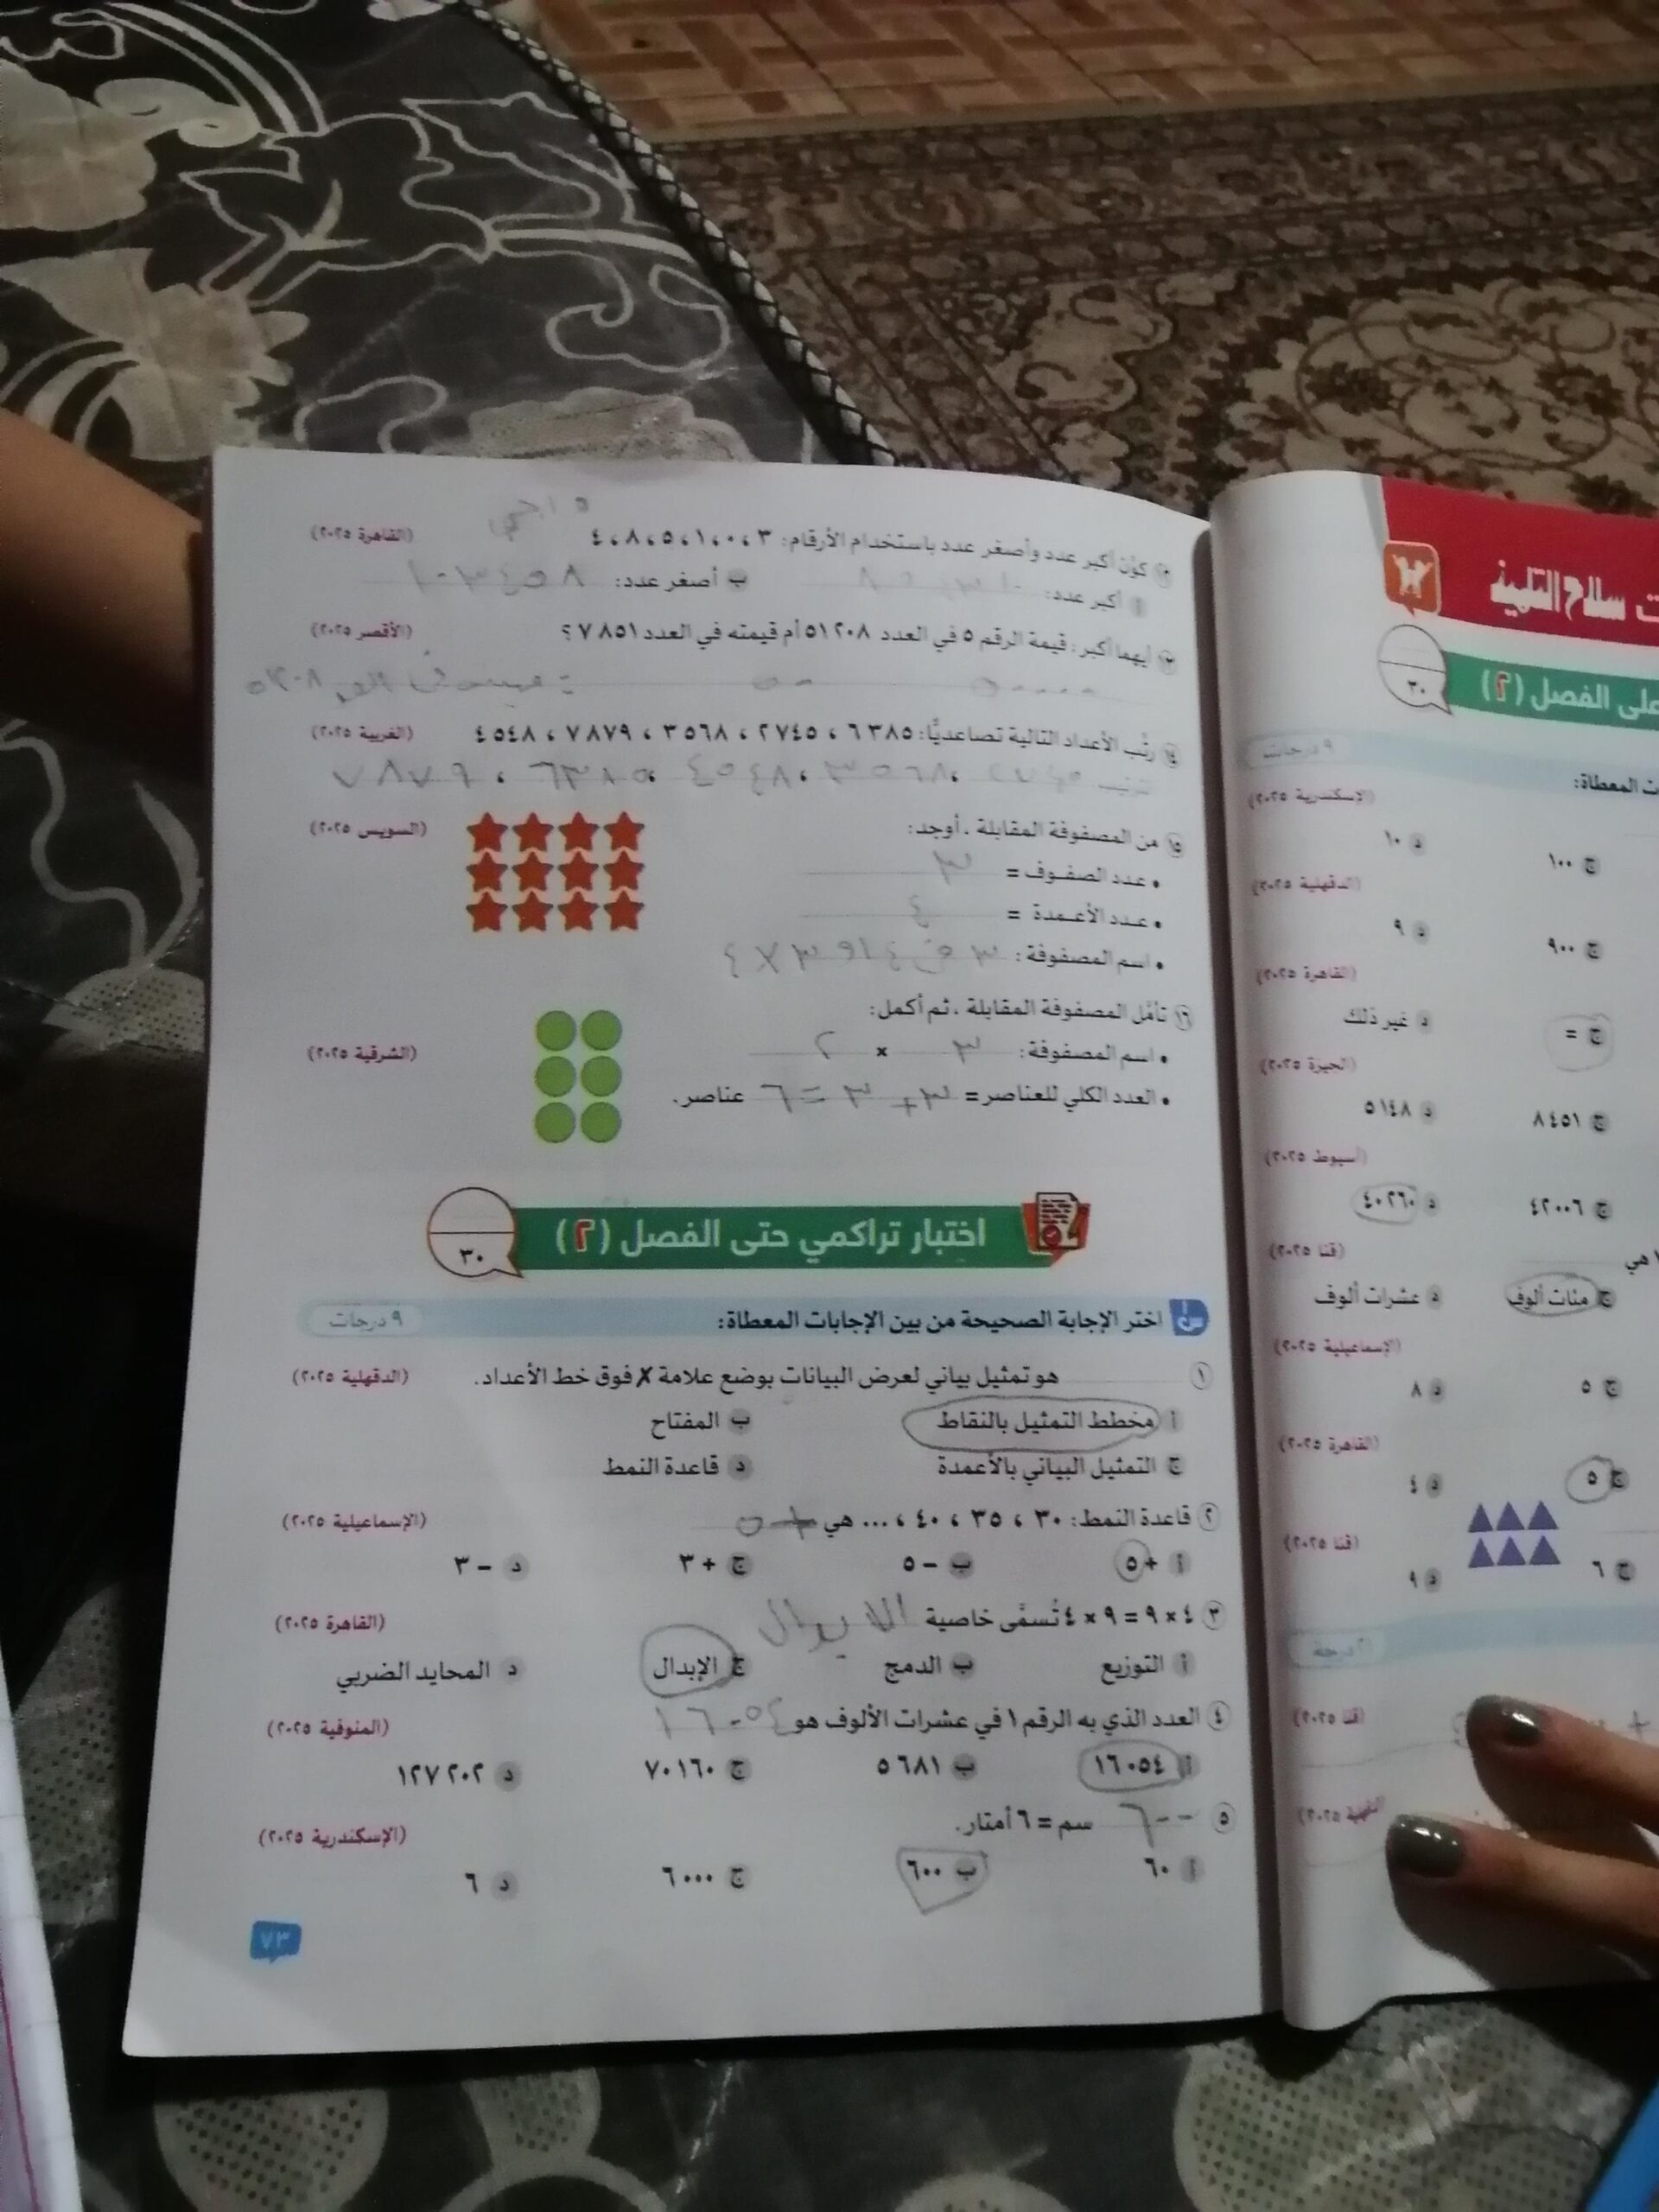 ١٢ كوّن أكبر عدد وأصغر عدد باستخدام الأرقام: ٣ ، ٠ ، ١ ، ٥ ، ٨ ، ٤ (القاهرة ٢٠٢٥)
أ أكبر عدد: ب أصغر عدد:
١٣ أيهما أكبر: قيمة الرقم ٥ في العدد ٥١٢٠٨ أم قيمته في العدد ٧٨٥١ ؟ (الأقصر ٢٠٢٥)
١٤ رتِّب الأعداد التالية تصاعديًّا: ٦٣٨٥ ، ٢٧٤٥ ، ٣٥٦٨ ، ٧٨٧٩ ، ٤٥٤٨ (الغربية ٢٠٢٥)
١٥ من المصفوفة المقابلة ، أوجد: (السويس ٢٠٢٥)
• عدد الصفوف = ٣
• عدد الأعمدة = ٤
• اسم المصفوفة: ٣ × ٤
١٦ تأمَّل المصفوفة المقابلة ، ثم أكمل:
• اسم المصفوفة: ٣ × ٢ (الشرقية ٢٠٢٥)
• العدد الكلي للعناصر = ٣ + ٣ = ٦ عناصر.
اختبار تراكمي حتى الفصل (٢)
٣٠
س١ اختر الإجابة الصحيحة من بين الإجابات المعطاة: ٩ درجات
١ هو تمثيل بياني لعرض البيانات بوضع علامة ✗ فوق خط الأعداد. (الدقهلية ٢٠٢٥)
أ مخطط التمثيل بالنقاط ب المفتاح
ج التمثيل البياني بالأعمدة د قاعدة النمط
٢ قاعدة النمط: ٣٠ ، ٣٥ ، ٤٠ ، ... هي + ٥ (الإسماعيلية ٢٠٢٥)
أ + ٥ ب − ٥ ج + ٣ د − ٣
٣ ٤ × ٩ = ٩ × ٤ تُسمَّى خاصية الابدال (القاهرة ٢٠٢٥)
أ التوزيع ب الدمج ج الإبدال د المحايد الضربي
٤ العدد الذي به الرقم ١ في عشرات الألوف هو ١٦٠٥٤ (المنوفية ٢٠٢٥)
أ ١٦٠٥٤ ب ٥٦٨١ ج ٧٠١٦٠ د ١٢٧٢٠٢
٥ ٦٠٠ سم = ٦ أمتار. (الإسكندرية ٢٠٢٥)
أ ٦٠ ب ٦٠٠ ج ٦٠٠٠ د ٦
٧٣
سلاح التلميذ
على الفصل (٢)
٣٠
٩ درجات
ت المعطاة:
(الإسكندرية ٢٠٢٥)
ج ١٠٠ د ١٠
(الدقهلية ٢٠٢٥)
ج ٩٠٠ د ٩
(القاهرة ٢٠٢٥)
ج = د غير ذلك
(الجيزة ٢٠٢٥)
ج ٨٤٥١ د ٥١٤٨
(أسيوط ٢٠٢٥)
ج ٤٢٠٠٦ د ٤٠٢٦٠
هي (قنا ٢٠٢٥)
ج مئات ألوف د عشرات ألوف
(الإسماعيلية ٢٠٢٥)
ج ٥ د ٨
(القاهرة ٢٠٢٥)
ج ٥ د ٤
(قنا ٢٠٢٥)
ج ٦ د ٩
درجة
(قنا ٢٠٢٥)